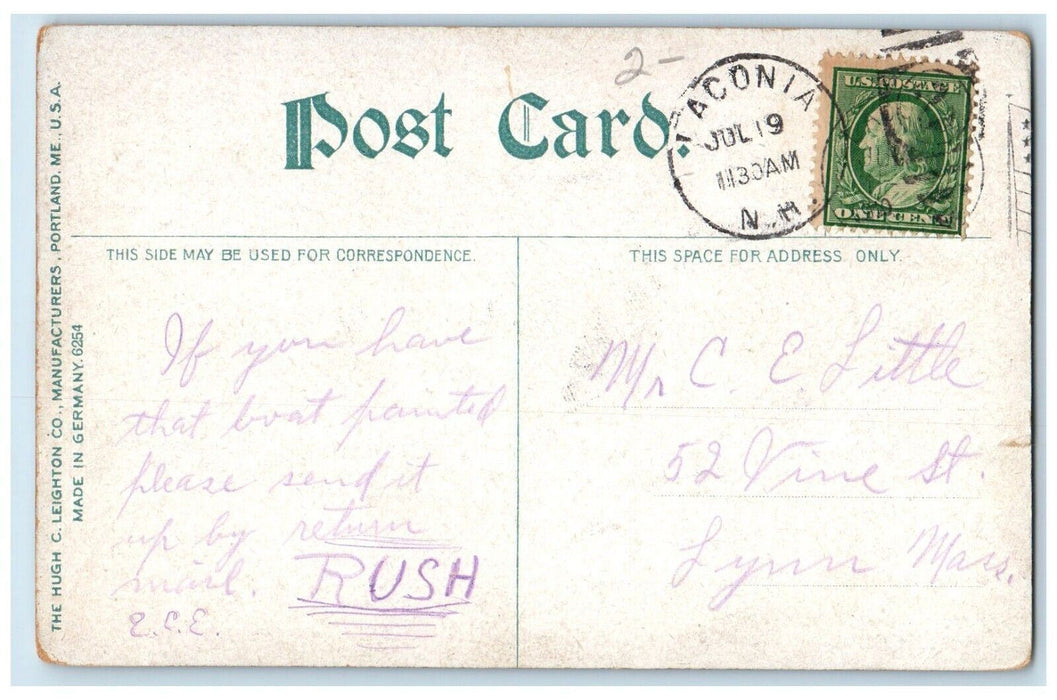 2-
Post Card.
LACONIA
JUL 19
1130AM
N.H.
U.S. POSTAGE
ONE CENT
THIS SIDE MAY BE USED FOR CORRESPONDENCE.
THIS SPACE FOR ADDRESS ONLY.
THE HUGH C. LEIGHTON CO., MANUFACTURERS, PORTLAND, ME., U.S.A.
MADE IN GERMANY. 6254
If you have
that boat painted
please send it
up by return
mail. RUSH
E.C.E.
Mr C. E. Little
52 Vine St.
Lynn Mass.